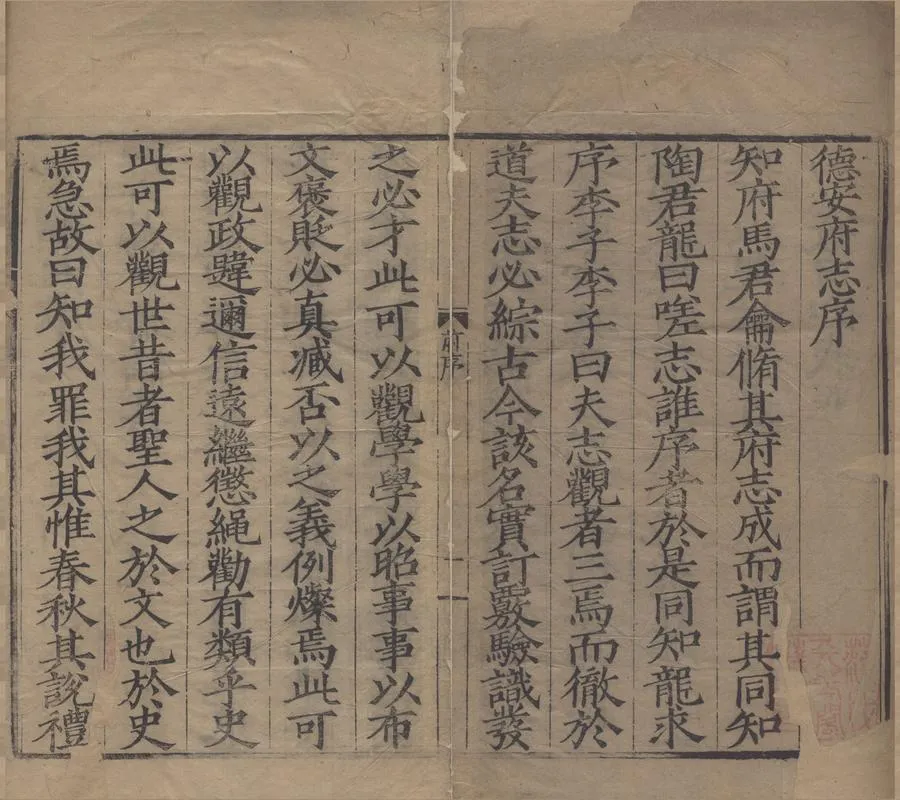 德安府志序
知府馬君侖脩其府志成而謂其同知
陶君龍曰嗟志誰序者於是同知龍求
序李子李子曰夫志觀者三焉而徹於
道夫志必綜古今該名實訂覈驗識發
前序
之必才此可以觀學學以昭事事以布
文褒貶必真臧否以之義例燦焉此可
以觀政韙邇信遠繼懲繩勸有類乎史
此可以觀世昔者聖人之於文也於史
焉急故曰知我罪我其惟春秋其說禮